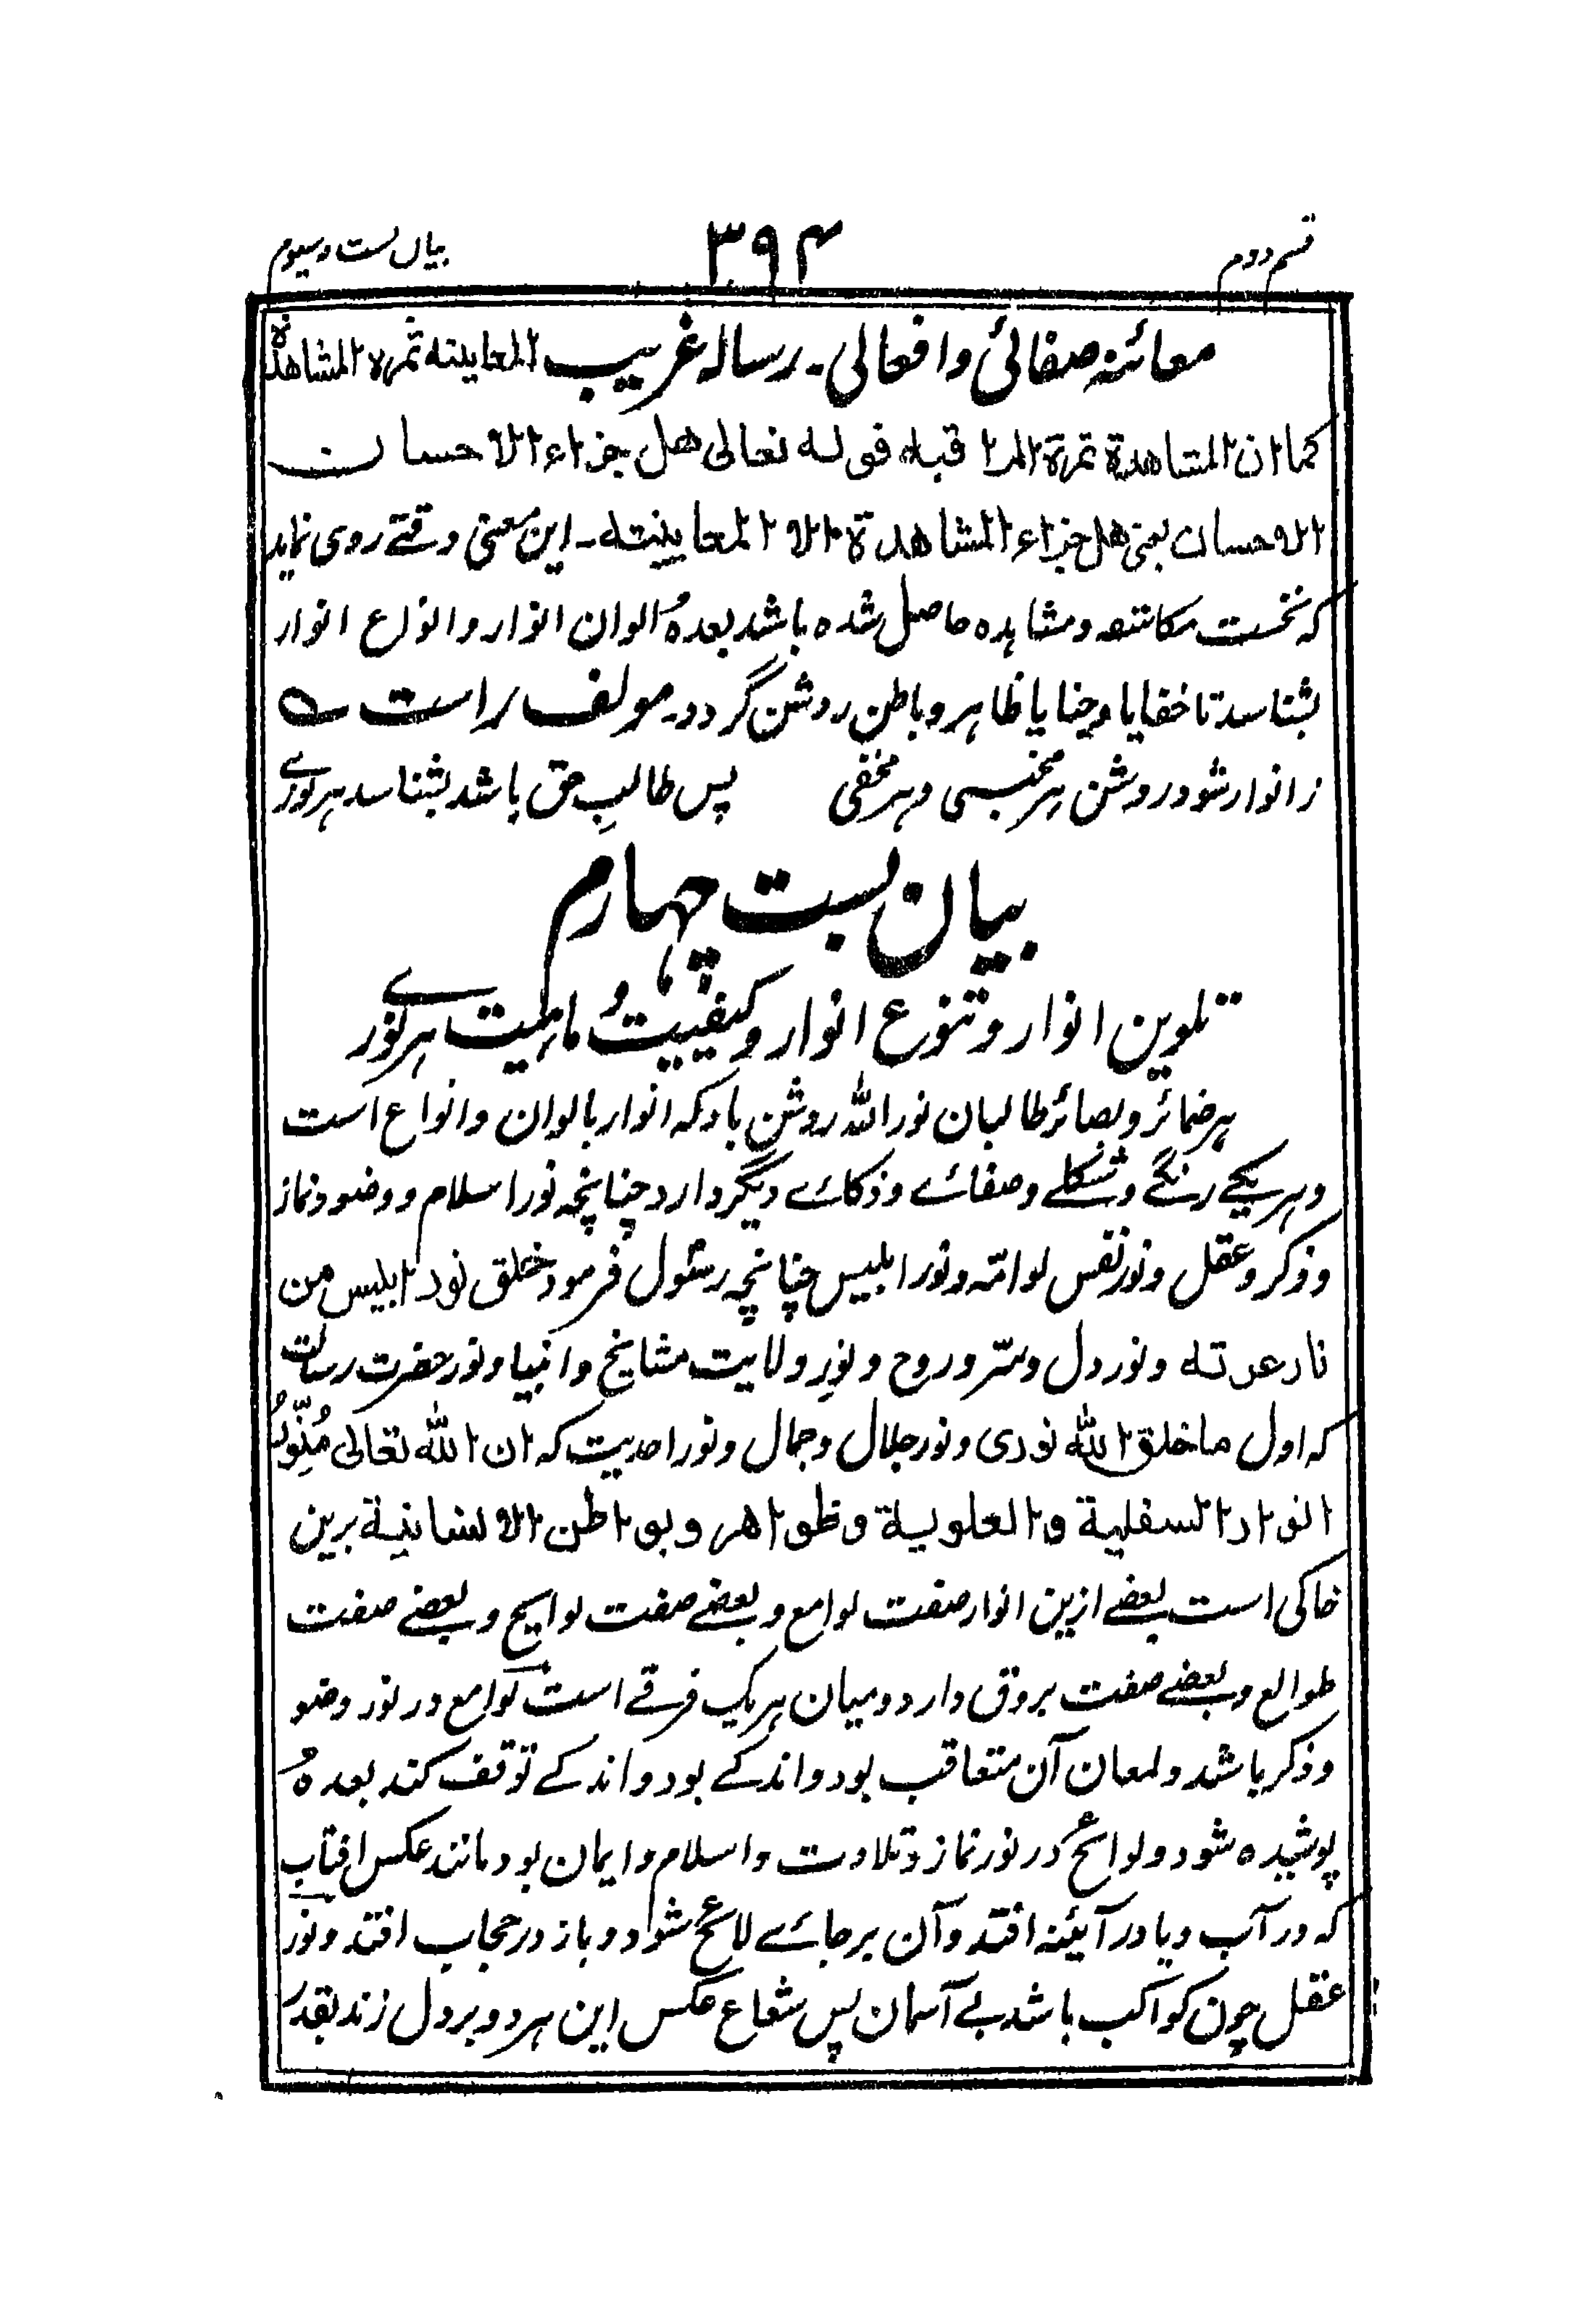 قسم دوم ۳۹۴ بیان بست وسیوم
معائنہ صفائی وافعالی۔ رسالہ غریب المعاینته ثمرة المشاهدة
کما ان المشاهدة ثمرة المراقبه قوله تعالی هل جزاء الاحسان
الاحسان یعنی هل جزاء المشاهدة الا المعاینته۔ این معنی وقتے روی نماید
که نخست مکاشفه و مشاهده حاصل شده باشد بعدهٗ الوان انوار و انواع انوار
بشناسد تا خفایا و خبایا ظاهر و باطن روشن گردد۔ مولف راست ے
ز انوار شود روشن هر مختبی و هر مخفی پس طالبِ حق باشد بشناسد هر نورے
بیان بست چهارم
تلوین انوار و تنوع انوار و کیفیت و ماهیت هر نورے
بر ضمائر و بصائر طالبان نور الله روشن باد که انوار بالوان و انواع است
و هر یکے رنگے و شکلے و صفائے و ذکائے دیگر دارد چنانچه نور اسلام و وضو و نماز
و ذکر و عقل و نور نفس لوامّه و نور ابلیس چنانچه رسول فرمود خلق نور ابلیس من
نار عزته و نور دل و سرّ و روح و نورِ ولایت مشایخ و انبیا و نور حضرت رسالت
که اول ما خلق الله نوری و نور جلال و جمال و نور احدیت که ان الله تعالی مُنَوِّرُ
انوار السفلیة و العلویة و ظواهر و بواطن الانسانیة برین
خاکی است بعضے ازین انوار صفت لوامع و بعضے صفت لوایح و بعضے صفت
طوالع و بعضے صفت بروق دارد و میان هر یک فرقے است لوامع در نور وضو
و ذکر باشد و لمعان آن متعاقب بود و اندکے بود و اندکے توقف کند بعدهٗ
پوشیده شود و لوائح در نور نماز و تلاوت و اسلام و ایمان بود مانند عکس افتاب
که در آب و یا در آئینه افتد و آن بر جائے لائح شود و باز در حجاب افتد و نور
عقل چون کواکب باشد بے آسمان پس شعاع عکس این هر دو بر دل زند بقدر